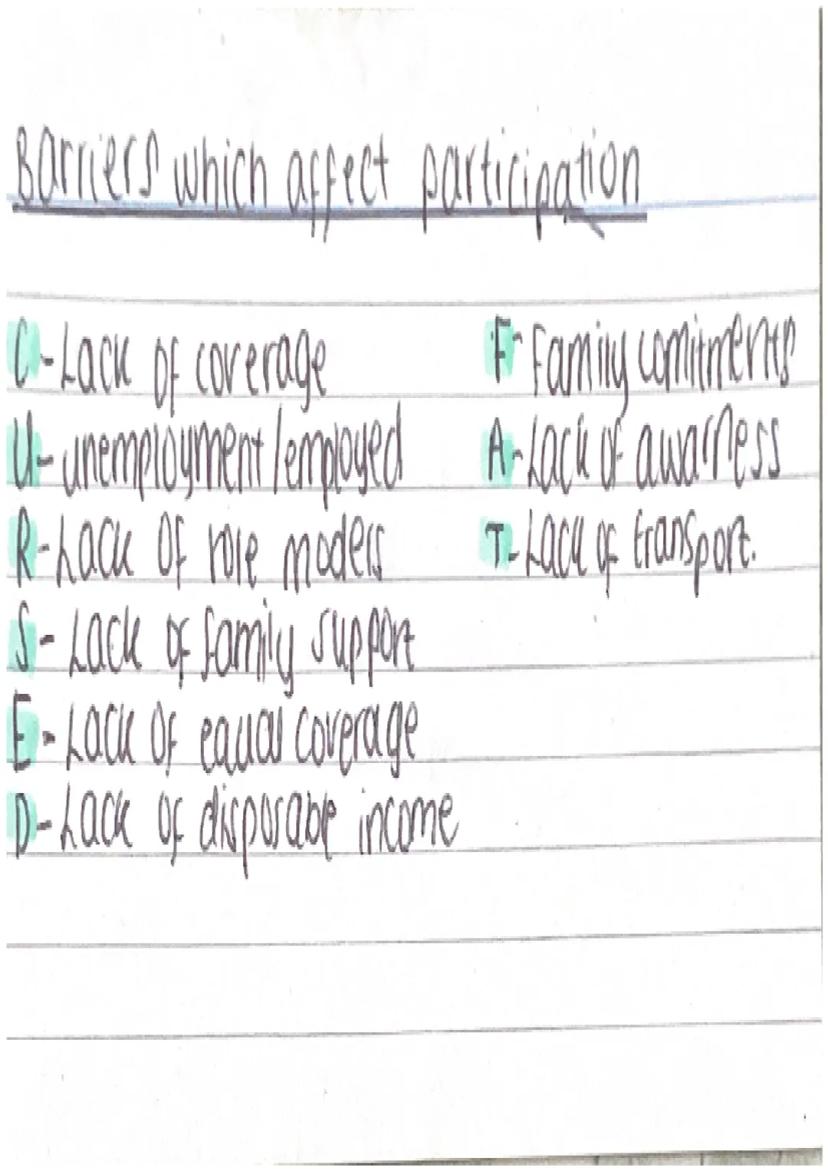 Barriers which affect participation
C-Lack of coverage
U-unemployment/employed
R-Lack of role models
S-Lack of family support
E-Lack of equal coverage
D-Lack of disposable income
F-Family comitments
A-Lack of awarness
T-Lack of transport.